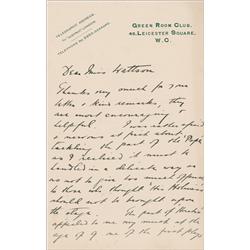 TELEGRAPHIC ADDRESS:
GREEN ROOM CLUB,
46, LEICESTER SQUARE,
W.C.
Dear Miss Wattson
Thanks very much for your
letter & kind remarks, they
are most encouraging
helpful. I was rather
nervous at first about
tackling the part of the "Pope"
as I realised it must be
handled in a delicate way so
as not to give too much offence
to those who thought His Holiness
should not be brought upon
the stage. The part of
appealed to me very much at the
age of 9 one of the first plays